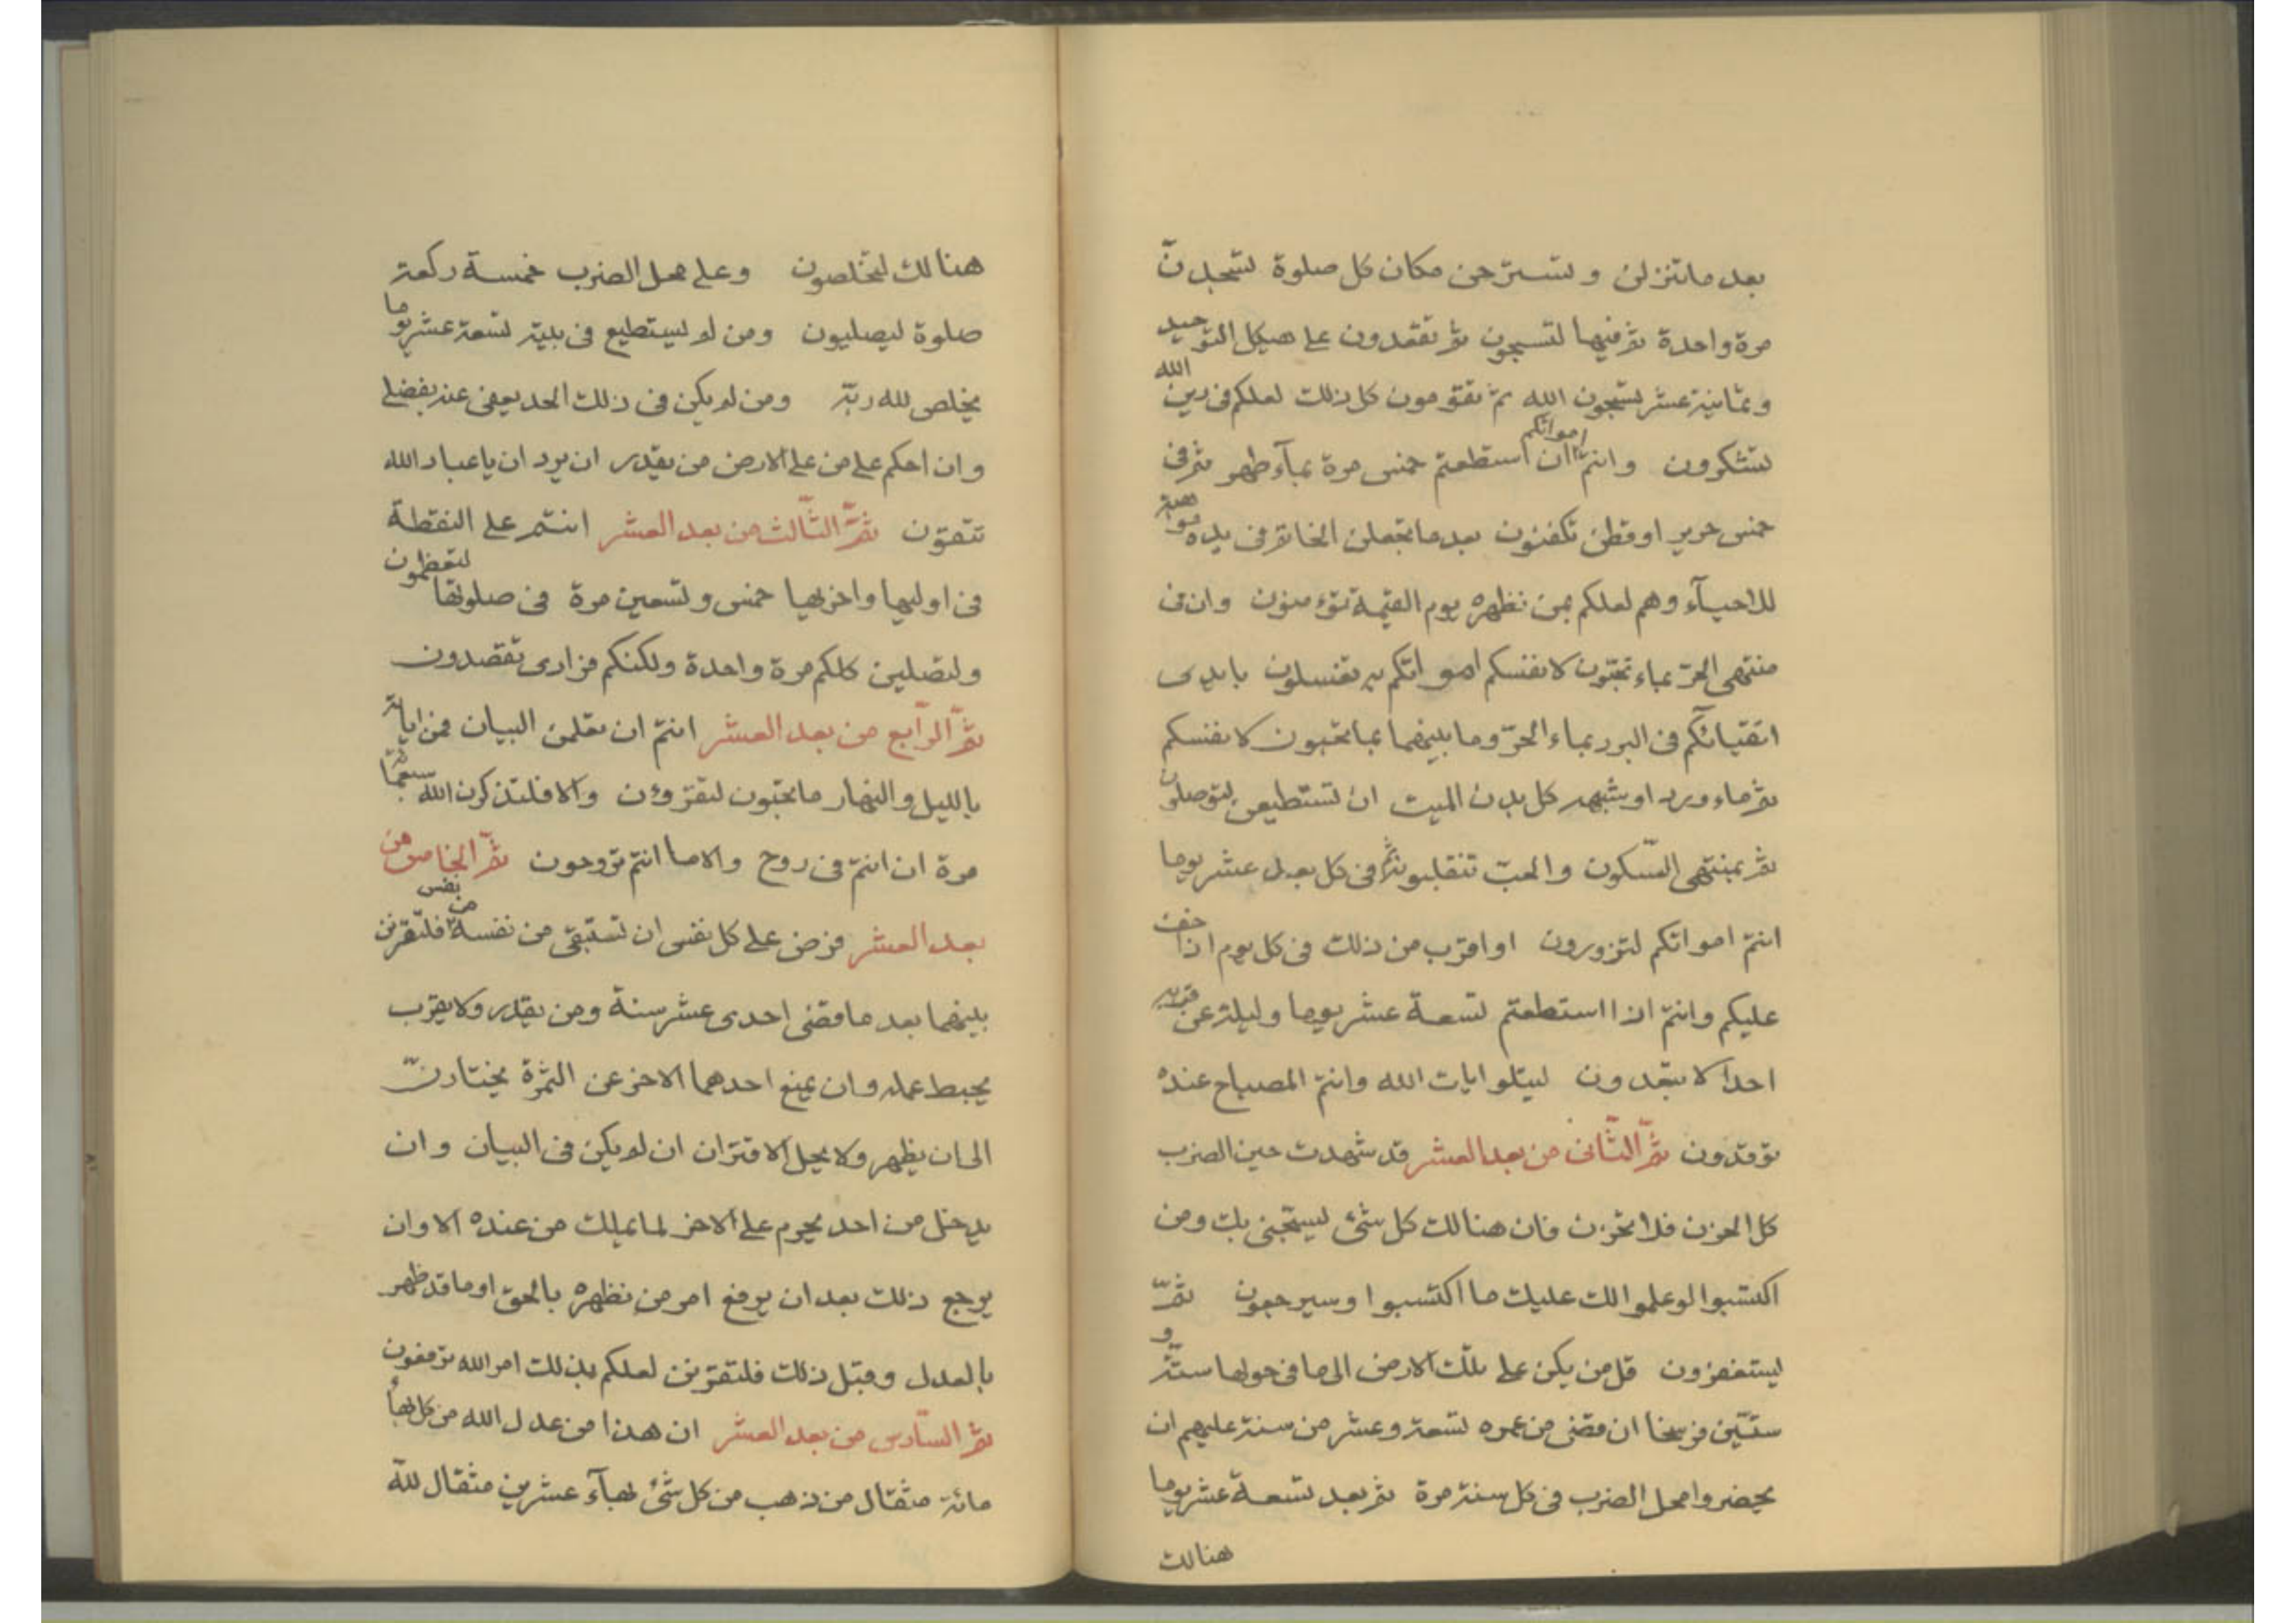 بعد ما تنزلن و لتسترحن مكان كل صلوة لتسجدنّ
مرة واحدة ثم فيها لتسبحون ثم تقعدون على هيكل التوحيد
و ثمانية عشر لتسبحون الله ثم تقومون كل ذلك لعلكم فى دين الله
لتشكرون و انتم ان استطعتم امواتكم خمس مرة بمآء طهر ثم فى
خمس حرير او قطن تكفنون بعد ما تجعلن الخاتم فى يده موهبة
للاحيآء و هم لعلكم بمن نظهره يوم القيمة تؤمنون و ان فى
منتهى الحرّ بماء تحبّون لانفسكم امواتكم به تغسلون بايدى
اتقيائكم فى البرد بماء الحرّ و ما بينهما بما تحبون لانفسكم
ثم ماء ورد او شبهه كل بدن الميت ان تستطيعن لتوصلون
ثم بمنتهى السّكون و الحبّ تنقلبونه ثم فى كل بعد عشر يوما
انتم امواتكم لتزورون او اقرب من ذلك فى كل يوم اذا خفت
عليكم و انتم اذا استطعتم تسعة عشر يوما و ليلة عن قبره
احدا لا تبعدون ليتلو ايات الله و انتم المصباح عنده
توقدون ثمّ الثّانى من بعد العشر قد شهدت حين الضرب
كل الحزن فلا تحزن فان هنالك كل شئ ليسبّحنى بك و من
اكتسبوا لو علموا لك عليك ما اكتسبوا و سيرجعون ثمّ
ليستغفرون قل من يكن على تلك الارض الى ما فى حولها ستّة و
ستّين فرسخا ان قضى من عمره تسعة و عشر من سنة عليهم ان
يحضروا محل الضرب فى كل سنة مرة ثم بعد تسعة عشر يوما
هنالك
هنالك ليخلصون و على محل الضرب خمسة ركعة
صلوة ليصليون و من لم يستطيع فى بيته تسعة عشر يوما
يخلص لله ربّه و من لم يكن فى ذلك الحد يعفى عنه بفضلى
و ان احكم على من على الارض من يقدر ان يرد ان يا عباد الله
تتقون ثمّ الثّالث من بعد العشر انتم على النقطة
فى اوليها و اخريها خمس و تسعين مرة فى صلوتها لتعظمون
و لتصلين كلكم مرة واحدة و لكنكم فرادى تقصدون
ثمّ الرّابع من بعد العشر انتم ان تعلمن البيان فمن اياته
بالليل و النهار ما تحبّون لتقرؤن و الا فلتذكرن الله سبعمائة
مرة ان انتم فى روح و الا ما انتم تروحون ثمّ الخامس من
بعد العشر فرض على كل نفس ان تستبقى من نفسه من نفس فلتقرنن
بينهما بعد ما قضى احدى عشر سنة و من يقدر و لا يقرب
يحبط عمله و ان يمنع احدهما الاخر عن الثمرة يختارنّ
الى ان يظهر و لا يحل الاقتران ان لم يكن فى البيان و ان
يدخل من احد يحرم على الاخر لما يملك من عنده الا و ان
يرجع ذلك بعد ان يرفع امر من نظهره بالحق او ما قد ظهر
بالعدل و قبل ذلك فلتقرنن لعلكم بذلك امر الله ترفعون
ثمّ السّادس من بعد العشر ان هذا من عدل الله من كل بهاء
مائة مثقال من ذهب من كل شئ بهآء عشرين مثقال للّه